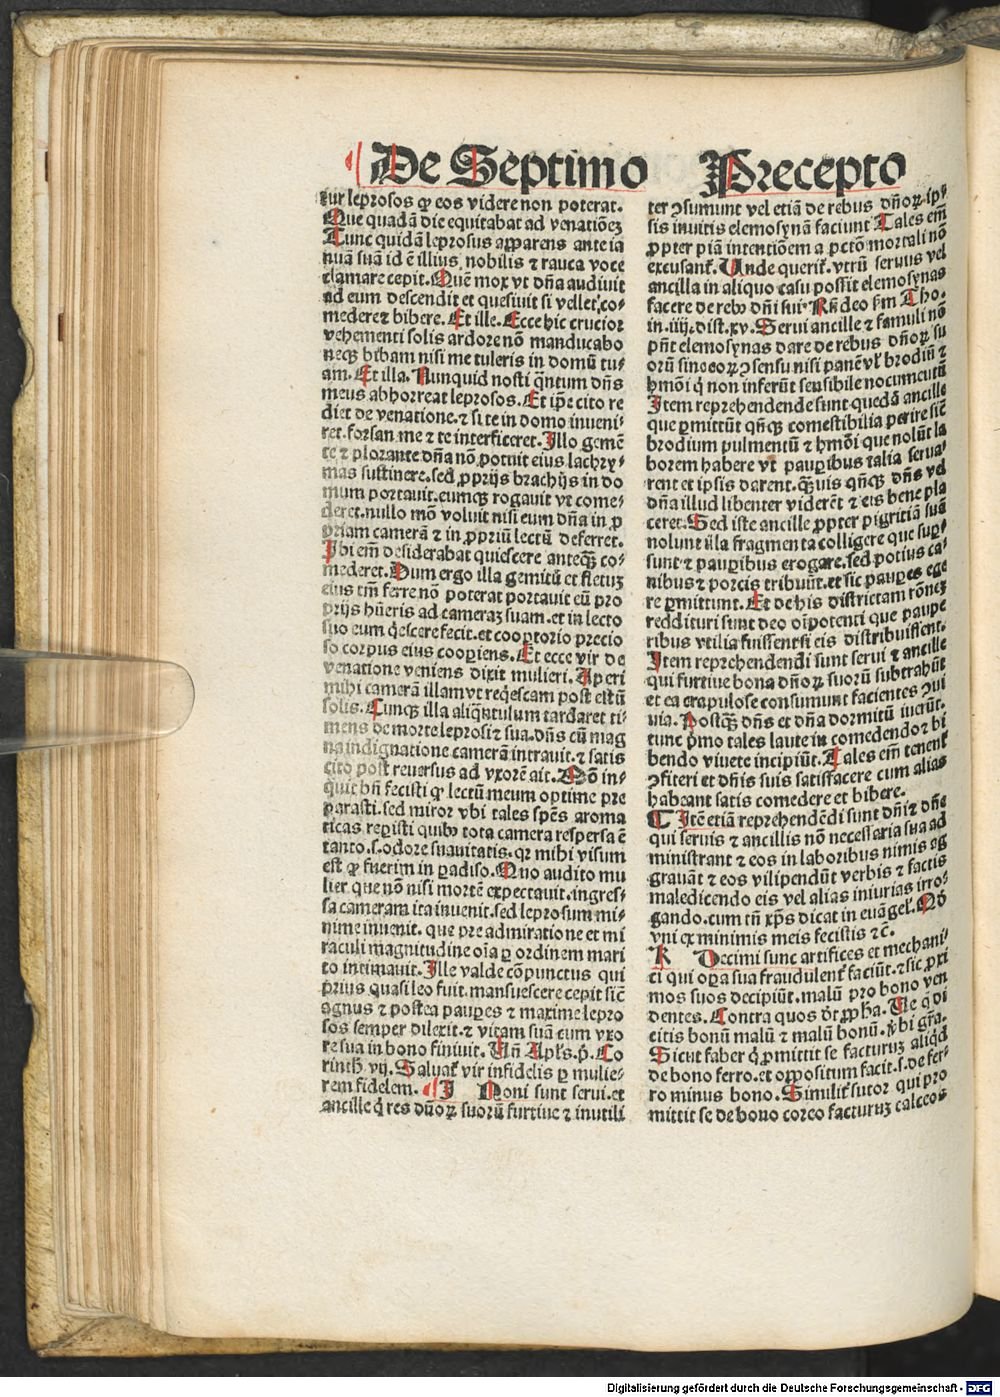 De Septimo Precepto
tur leprosos qꝛ eos videre non poterat.
Que quadã die equitabat ad venatiõeꝫ
Tunc quidã leprosus apparens ante ia
nuã suã id ẽ illius, nobilis ⁊ rauca voce
clamare cepit. Quẽ mox vt dña audiuit
ad eum descendit et quesiuit si vellet, co-
medere⁊ bibere. Et ille. Ecce hic crucior
vehementi solis ardore nõ manducabo
neqꝫ bibam nisi me tuleris in domũ tu-
am. Et illa. Nunquid nosti q̃ntum dñs
meus abhorreat leprosos. Et ip̃e cito re
diet de venatione. ⁊ si te in domo inueni-
ret. forsan me ⁊ te interficeret. Illo gemẽ
te ⁊ plorante dña nõ potuit eius lachry-
mas sustinere. sed ꝓprijs brachijs in do
mum portauit. eumqꝫ rogauit vt come-
deret. nullo mõ voluit nisi eum dña in ꝓ
priam camerã ⁊ in ꝓpriũ lectũ deferret.
Ibi em̃ desiderabat quiescere anteqꝫ co-
mederet. Dum ergo illa gemitũ et fletuꝫ
eius tm̃ ferre nõ poterat portauit eũ pro
prijs hũeris ad cameraꝫ suam. et in lecto
suo eum q̇escere fecit. et cooptorio precio
so corpus eius cooꝑiens. Et ecce vir de
venatione veniens dixit mulieri. Aperi
mihi camerã illam vt req̇escam post estũ
solis. Cunqꝫ illa aliq̃ntulum tardaret ti-
mens de morte leprosi ⁊ sua. dñs cũ mag
na indignatione camerã intrauit. ⁊ satis
cito post reuersus ad vxorẽ ait. Mõ in-
quit bñ fecisti qꝛ lectũ meum optime pre
parasti. sed miror vbi tales spẽs aroma
ticas reꝑisti quibꝰ tota camera respersa ẽ
tanto. s. odore suauitatis. qꝛ mihi visum
est qꝛ fuerim in ꝑadiso. Quo audito mu
lier que nõ nisi mortẽ expectauit. ingres-
sa cameram ita inuenit. sed leprosum mi-
nime inuenit. que pre admiratione et mi
raculi magnitudine oĩa ꝑ ordinem mari
to intimauit. Ille valde cõpunctus qui
prius quasi leo fuit. mansuescere cepit sic̃
agnus ⁊ postea pauꝑes ⁊ maxime lepro
sos semper dilexit. ⁊ vitam suã cum vxo
re sua in bono finiuit. Uñ Apl̃s. p̃. Co
rinth. vij. Saluat̃ vir infidelis ꝑ mulie-
rem fidelem. I Noni sunt serui. et
ancille q̇ res dñoꝝ suorũ furtiue ⁊ inutili
ter ↄsumunt vel etiã de rebus dñoꝝ ip̃
sis inuitis elemosynã faciunt Tales em̃
ꝓpter piã intentiõem a pctõ mortali nõ
excusant̃. Unde querit̃. vtrũ seruus vel
ancilla in aliquo casu possit elemosynas
facere de rebꝰ dñi sui. Rñdeo fm̃ Tho.
in. iiij. dist. xv. Serui ancille ⁊ famuli nõ
pñt elemosynas dare de rebus dñoꝝ su
orũ sine eoꝝ ↄsensu nisi panẽ vl̃ brodiũ ⁊
hmõi q̇ nõ inferũt sensibile nocumentũ
Item reprehendende sunt quedã ancille
que ꝑmittũt qñqꝫ comestibilia perire sic̃
brodium pulmentũ ⁊ hmõi que nolũt la
borem habere vt pauꝑibus talia serua-
rent et ipsis darent. q̃uis qñqꝫ dñs vel
dña illud libenter viderẽt ⁊ eis bene pla
ceret. Sed iste ancille ꝓpter pigritiã suã
nolunt illa fragmenta colligere que suꝑ-
sunt ⁊ pauꝑibus erogare. sed potius ca-
nibus ⁊ porcis tribuũt. et sic pauꝑes ege
re ꝑmittunt. Et de his districtam rõneꝫ
reddituri sunt deo oĩpotenti que paupe
ribus vtilia fuissent si eis distribuissent.
Item reprehendendi sunt serui ⁊ ancille
qui furtiue bona dñoꝝ suorũ subtrahũt
et ea crapulose consumunt facientes ↄui
uia. Postqꝫ dñs et dña dormitũ iuerũt.
tunc p̃mo tales laute in comedendo⁊ bi
bendo viuere incipiũt. Tales em̃ tenent̃
ↄfiteri et dñis suis satisfacere cum alias
habeant satis comedere et bibere.
Itẽ etiã reprehendẽdi sunt dñi⁊ dñe
qui seruis ⁊ ancillis nõ necessaria sua ad
ministrant ⁊ eos in laboribus nimis ag
grauãt ⁊ eos vilipendũt verbis ⁊ factis
maledicendo eis vel alias iniurias irro-
gando. cum tñ xp̃s dicat in euãgel̃. Qḋ
vni ex minimis meis fecistis ⁊c̃.
K Decimi sunt artifices et mechani-
ci qui oꝑa sua fraudulent̃ faciũt. ⁊ sic ꝓxi
mos suos decipiũt. malũ pro bono ven
dentes. Contra quos dr̃ ꝓpha. Ue q̇ di
citis bonũ malũ ⁊ malũ bonũ. vbi gr̃a.
Sicut faber q̇ ꝓmittit se facturuꝫ aliqd
de bono ferro. et oppositum facit. s. de fer-
ro minus bono. Similit̃ sutor qui pro
mittit se de bono coreo facturuꝫ calceos
Digitalisierung gefördert durch die Deutsche Forschungsgemeinschaft - DFG